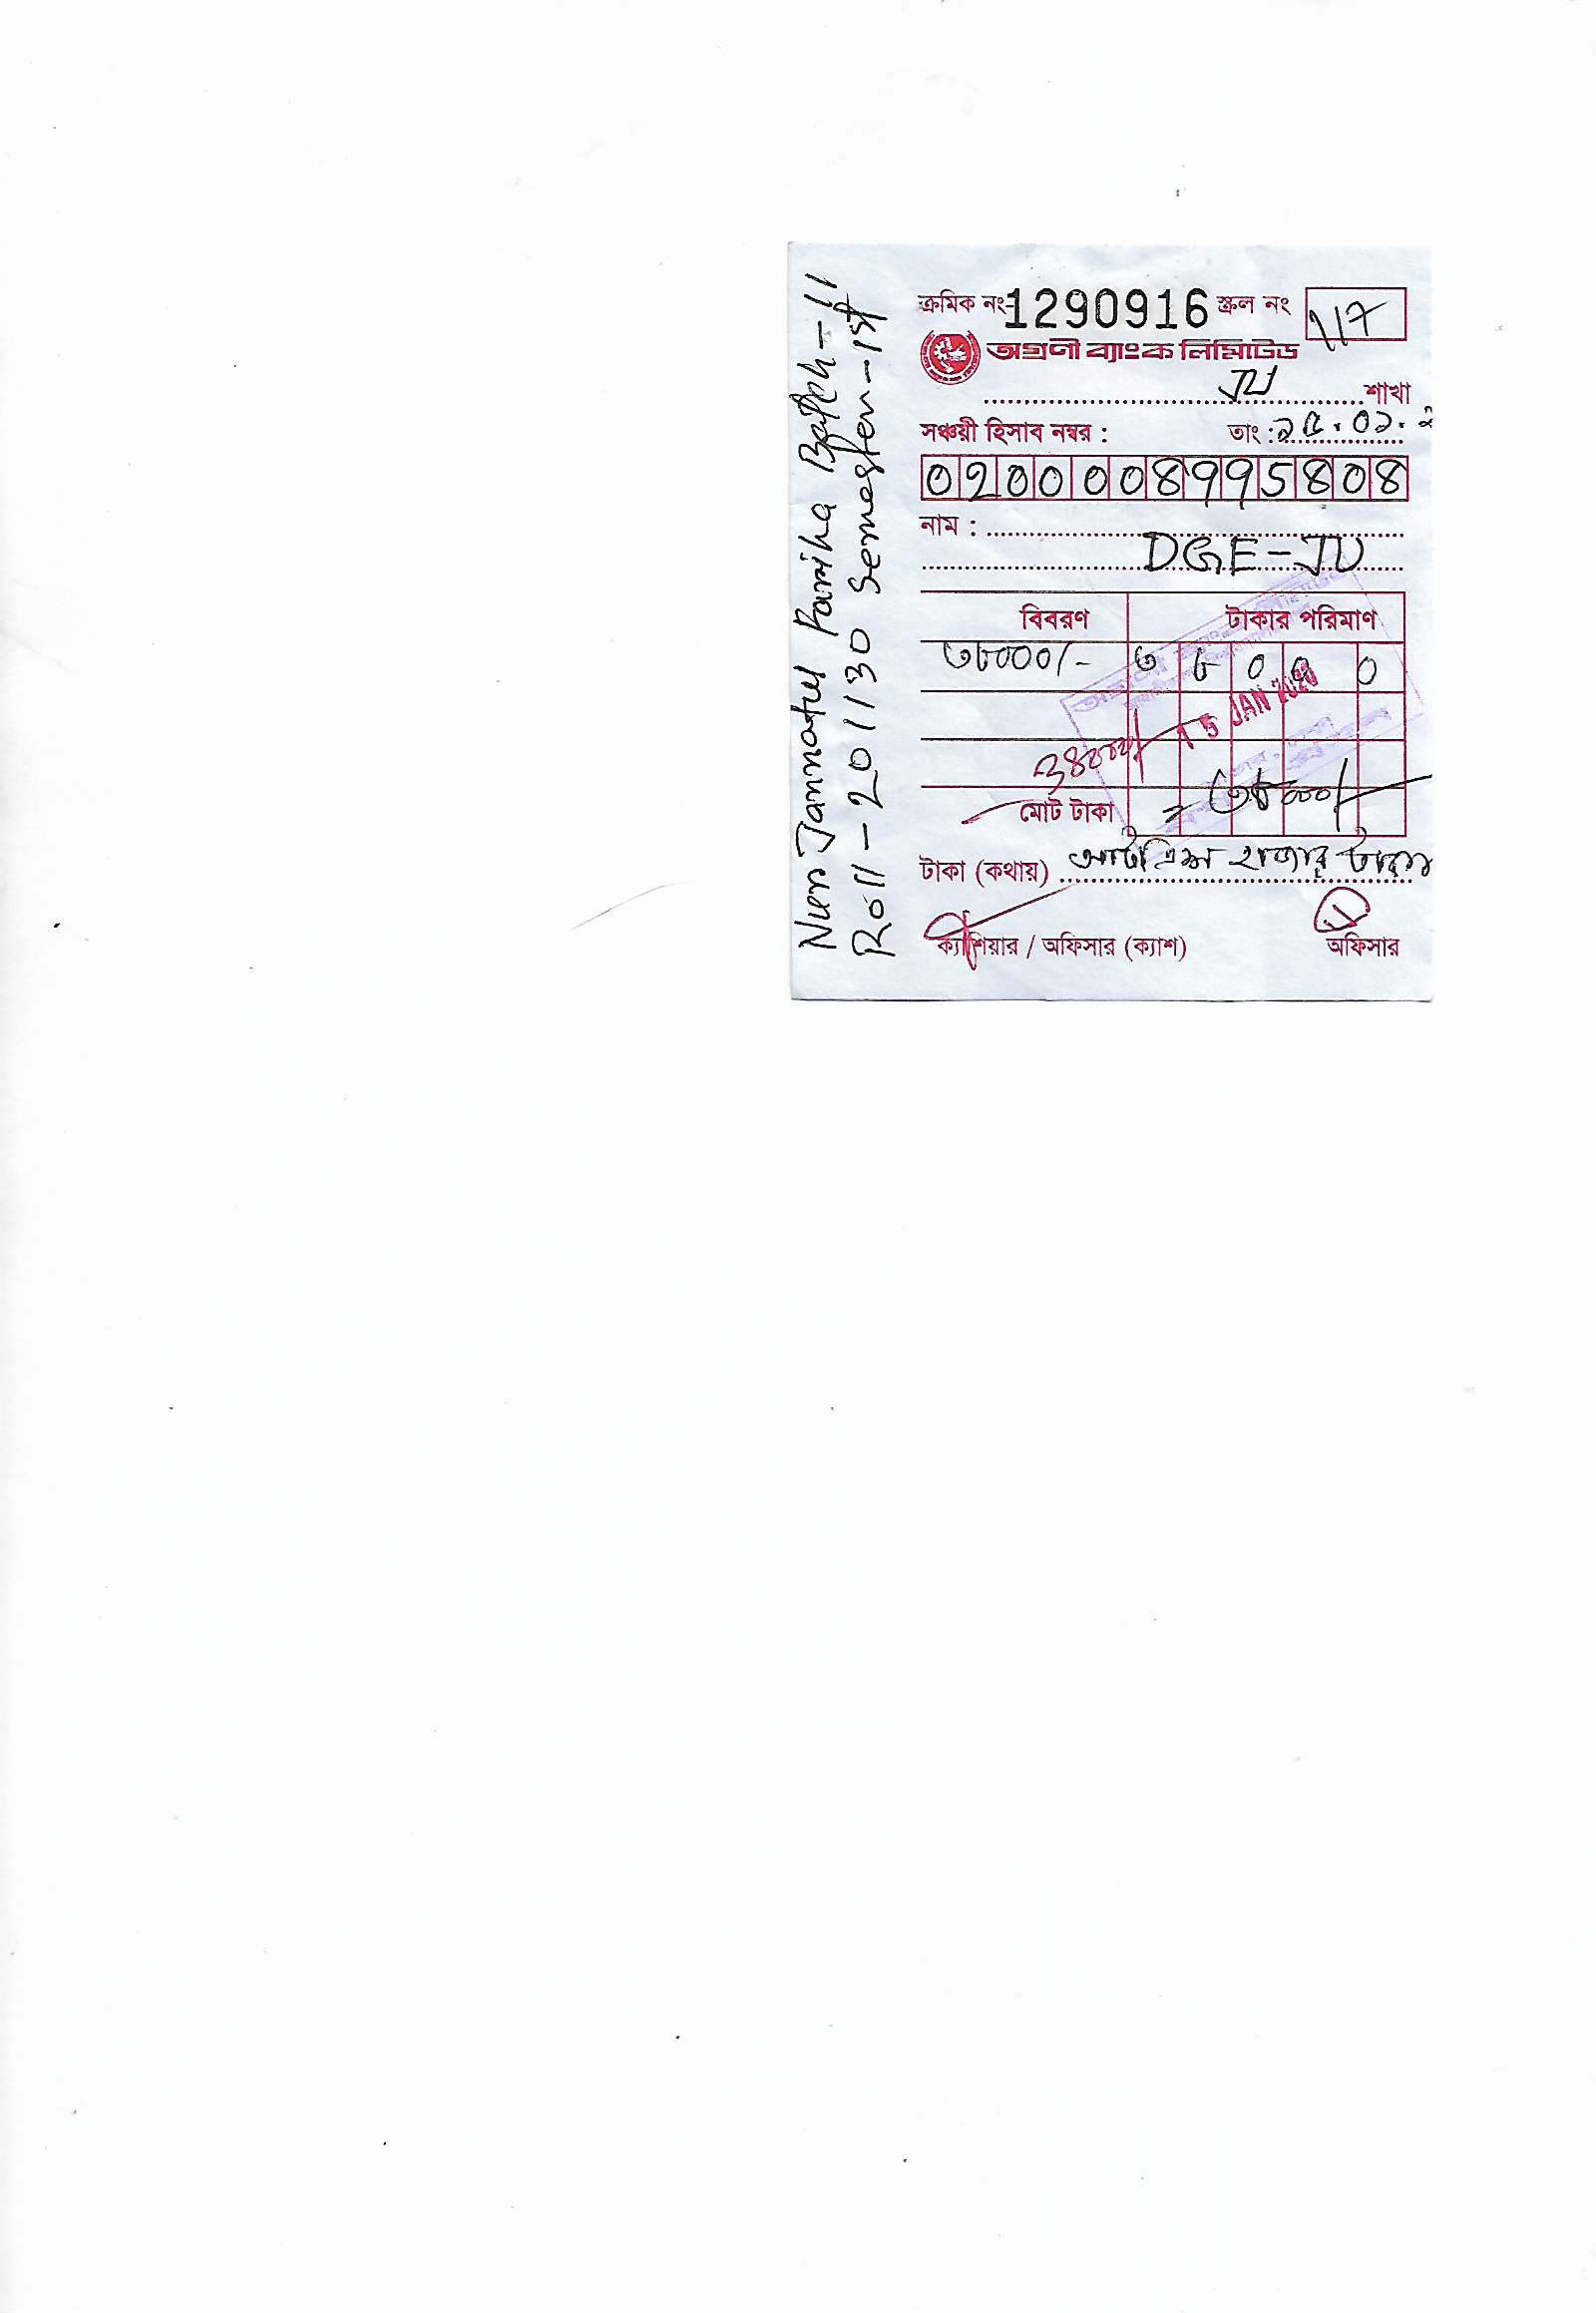 Nur Jannatul Fariha Batch-11
Roll-201130 Semester-1st
ক্রমিক নং-1290916 স্ক্রল নং 117
অগ্রণী ব্যাংক লিমিটেড
JU শাখা
সঞ্চয়ী হিসাব নম্বর : তাং : ১৫.০১.
0200008995808
নাম :
DGE-JU
বিবরণ টাকার পরিমাণ
৩৮০০০/- ৩ ৮ ০ ০ ০
15 JAN
মোট টাকা = ৩৮০০০/-
টাকা (কথায়) আটত্রিশ হাজার টাকা
ক্যাশিয়ার / অফিসার (ক্যাশ) অফিসার